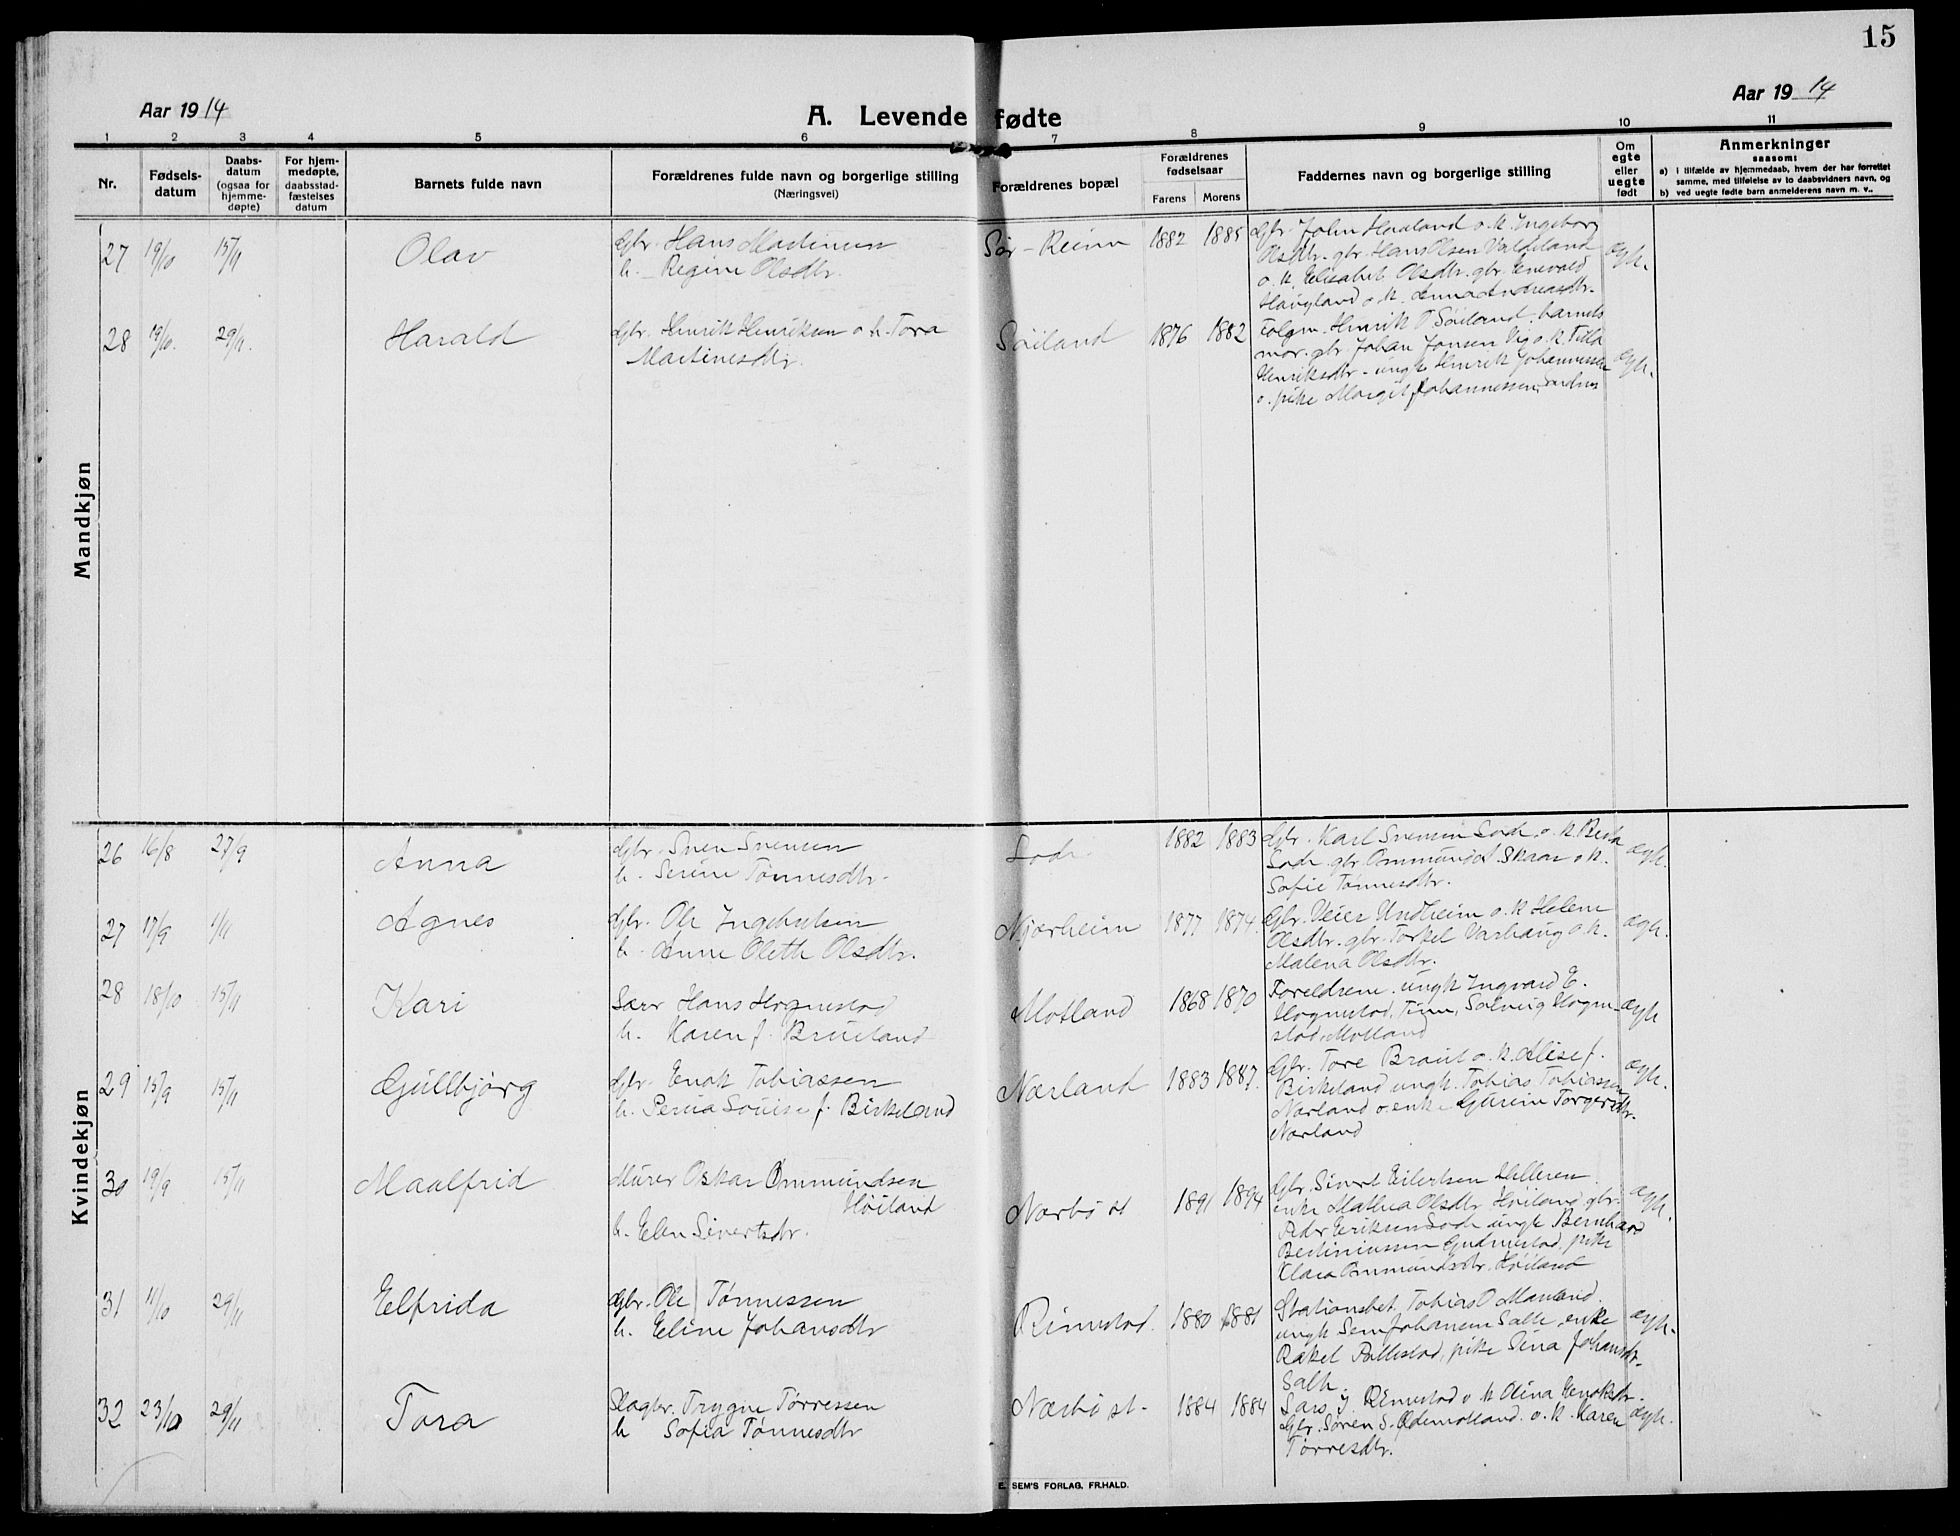 15
Aar 1914
A. Levende fødte
Aar 1914
1 2 3 4 5 6 7 8 9 10 11
Nr.
Fødsels-
datum
Daabs-
datum
(ogsaa for
hjemme-
døpte)
For hjem-
medøpte,
daabsstad-
fæstelses
datum
Barnets fulde navn
Forældrenes fulde navn og borgerlige stilling
(Næringsvei)
Forældrenes bopæl
Forældrenes
fødselsaar
Farens Morens
Faddernes navn og borgerlige stilling
Om
egte
eller
uegte
født
Anmerkninger
saasom:
a) i tilfælde av hjemmedaab, hvem der har forrettet
samme, med tilføielse av to daabsvidners navn, og
b) ved uegte fødte barn anmelderens navn m. v..
Mandkjøn
27 19/10 15/11 Olav
Gbr. Hans Martinsen
h. Regine Olsdtr.
Sør-Reime 1882 1885
Gbr. John Haaland o. k. Ingeborg
Olsdtr. gbr. Hans Olsen Valheland
o. k. Elisabet Olsdtr. gbr. Enevald
Haugland o. k. Anna Andreasdtr.
ægte.
28 19/10. 29/11. Harald
Gbr. Henrik Henriksen o. h. Tora
Martinesdtr.
Søiland 1876 1882
Folgm. Henrik T Søiland, barnets
mor. gbr. Johan Jonsen Vig o. k.
Henriksdtr - ungk. Henrik Johannessen
o. pike Margit Johannessen,
ægte.
Kvindekjøn
26 16/8 27/9 Anna
Gbr. Sven Svensen
h. Serine Tønnesdtr.
Lode 1882 1883
Gbr. Karl Svensen Lode, o. k. Berta
Lode. gbr. Ommund Skaar o. k.
Sofie Tønnesdtr.
ægte.
27 17/9 1/11 Agnes
Gbr. Ole Ingebretsen
h. Anne Oleth Olsdtr.
Njærheim 1877 1874.
Gbr. Veier Undheim o. k Helene
Olsdtr. gbr. Torkel Varhaug o. k.
Malena Olsdtr.
ægte.
28 18/10 15/11 Kari
Lærer Hans Hognestad
h. Karen f. Brueland
Motland 1868 1870
Foreldrene. ungk Ingvard E.
Hognestad, Solveig Hogne-
stad, Motland
ægte
29 15/9 15/11 Gullbjørg
Gbr. Enok Tobiassen
h. Louise f. Birkeland
Nærland 1883 1887.
Gbr. Tore Braut o. k. Alise f.
Birkeland ungk. Tobias Tobiassen
Nærland o. enke Gurine Torgersdtr.
Nærland
ægte.
30 19/9 15/11 Maalfrid
Murer Oskar Ommundsen
Høiland
h. Elen Sivertsdtr.
Nærbø st 1891 1894
Gbr. Sivert Eilertsen Helleren
enke Mathea Olsdtr. Høiland gbr.
Peder Eriksen Lode ungk Bernhard
Bertiniussen Gudmestad, pike
Klara Ommundsdtr. Høiland
ægte.
31 11/10 29/11 Elfrida
Gbr. Ole Tønnessen
h. Eline Johansdtr
Rimestad. 1880 1881
Stationsbet. Tobias O Mauland.
ungk. Sem Johansen Salte, enke
Rakel Pollestad, pike Sina Johansdtr.
Salte.
ægte.
32 23/10 29/11 Tora
Slagter. Trygve Tørressen
h Sofia Tønnesdtr
Nærbø st. 1884 1884
Lars J. Rimestad o. k Olina Enoksdtr.
Gbr. Søren S. Ødemotland. o. k. Karen
Tørresdtr.
ægte.
E. SEM'S FORLAG, FR.HALD.